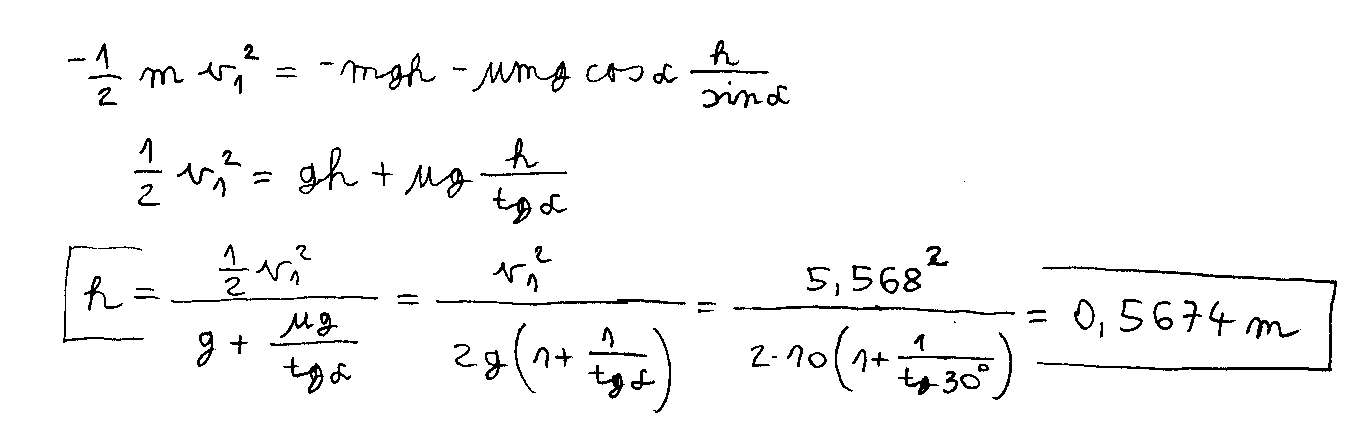 -1/2 m v₁² = -mgh - μmg cos α h/sin α
1/2 v₁² = gh + μg h/tg α
h = (1/2 v₁²)/(g + μg/tg α) = v₁²/(2g(1 + 1/tg α)) = 5,568²/(2·10(1 + 1/tg 30°)) = 0,5674 m